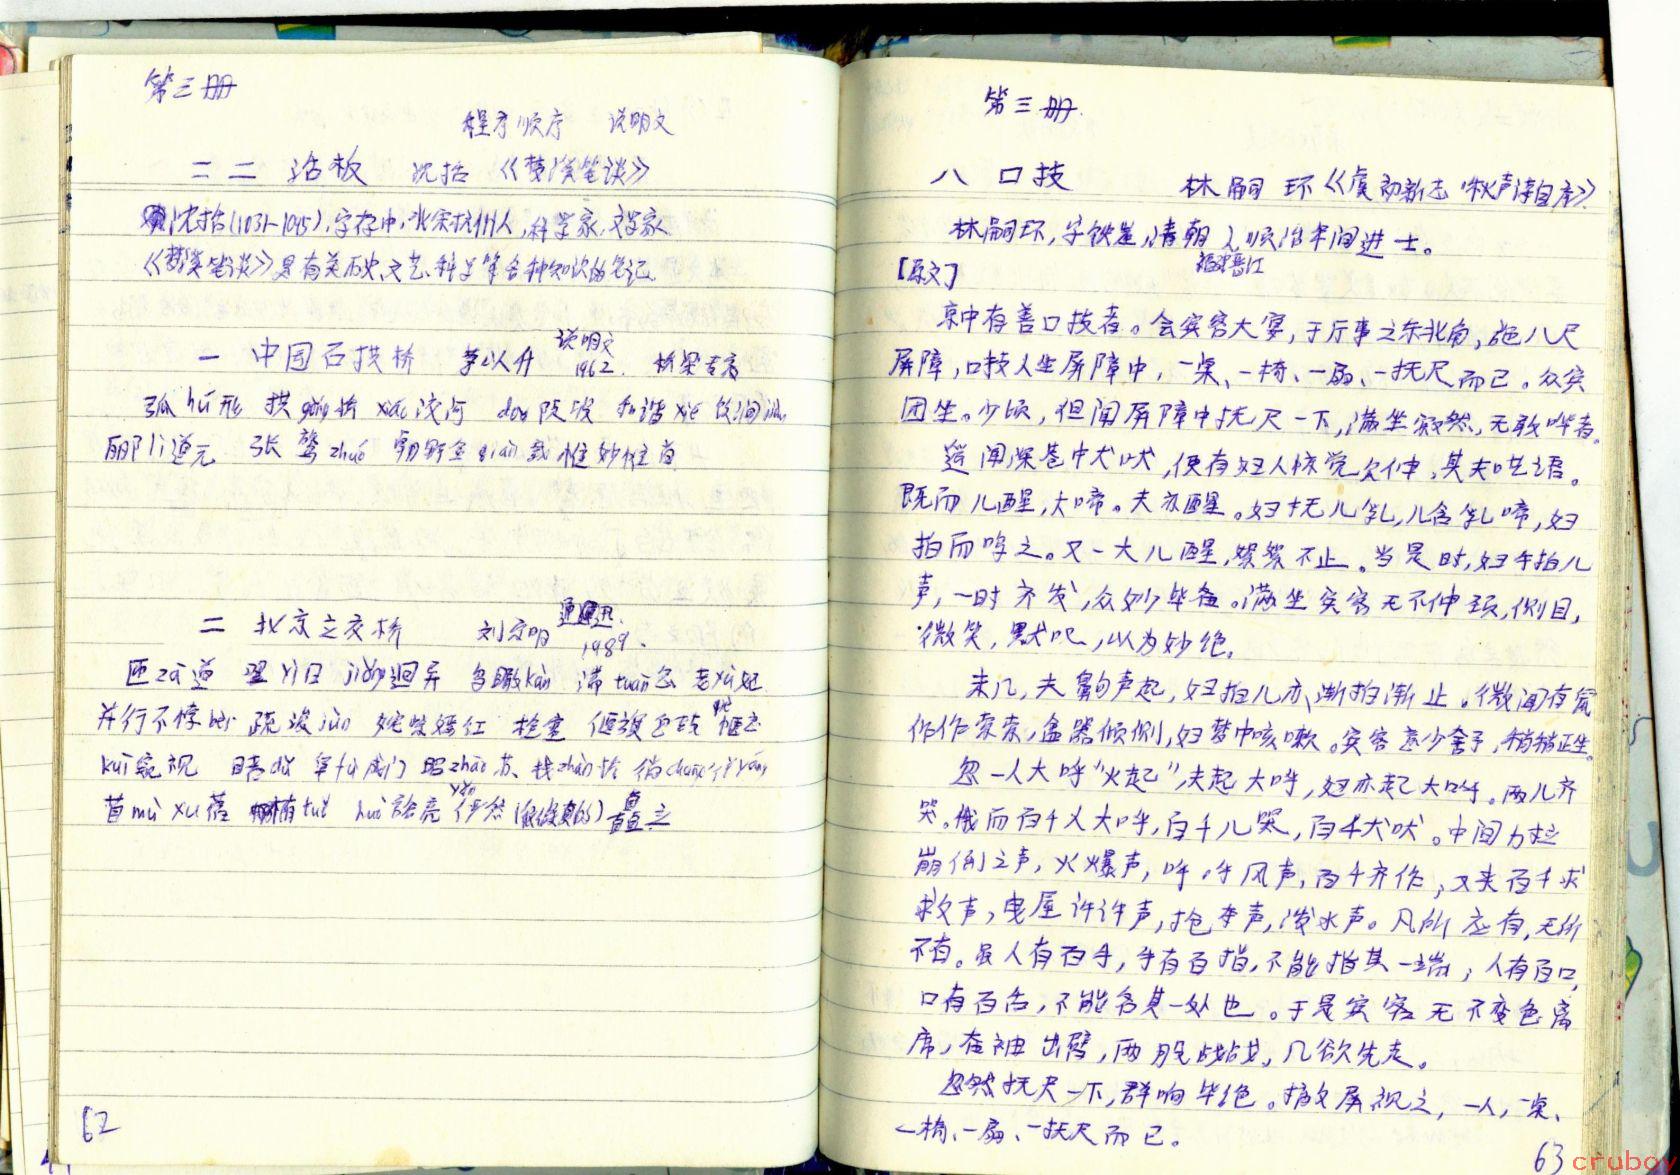 第三册
程序顺序 说明文
二二 活板 沈括《梦溪笔谈》
沈括(1031-1095),字存中,北宋杭州人,科学家,文学家
《梦溪笔谈》是有关历史、文艺、科学等各种知识的笔记.
说明文
一 中国石拱桥 茅以升 1962. 桥梁专家
弧hú形 拱gǒng桥 xiáo洨河 dǒu陡坡 和谐xié 饮涧
郦lì道元 张鷟zhuó 朝野佥qiān载 惟妙惟肖
通讯.
二 北京立交桥 刘宗明 1989.
匝zā道 翌yì日 jiǒng迥异 鸟瞰kàn 湍tuān急
并行不悖bèi 疏浚jùn 姹紫嫣红
kuī窥视 阜fù成门
苜mù xu蓿 huì 矗立
62
第三册.
八 口技 林嗣环《虞初新志·秋声诗自序》
林嗣环,字铁崖,清朝人,顺治年间进士。
福建晋江
[原文]
京中有善口技者。会宾客大宴,于厅事之东北角,施八尺
屏障,口技人坐屏障中,一桌、一椅、一扇、一抚尺而已。众宾
团坐。少顷,但闻屏障中抚尺一下,满坐寂然,无敢哗者。
遥闻深巷中犬吠,便有妇人惊觉欠伸,其夫呓语。
既而儿醒,大啼。夫亦醒。妇抚儿乳,儿含乳啼,妇
拍而呜之。又一大儿醒,絮絮不止。当是时,妇手拍儿
声,一时齐发,众妙毕备。满坐宾客无不伸颈,侧目,
微笑,默叹,以为妙绝.
未几,夫齁声起,妇拍儿亦渐拍渐止。微闻有鼠
作作索索,盆器倾侧,妇梦中咳嗽。宾客意少舒,稍稍正坐.
忽一人大呼“火起”,夫起大呼,妇亦起大呼。两儿齐
哭。俄而百千人大呼,百千儿哭,百千犬吠。中间力拉
崩倒之声,火爆声,呼呼风声,百千齐作;又夹百千求
救声,曳屋许许声,抢夺声,泼水声。凡所应有,无所
不有。虽人有百手,手有百指,不能指其一端;人有百口,
口有百舌,不能名其一处也。于是宾客无不变色离
席,奋袖出臂,两股战战,几欲先走。
忽然抚尺一下,群响毕绝。撤屏视之,一人,一桌、
一椅、一扇、一抚尺而已。
63
cruboy